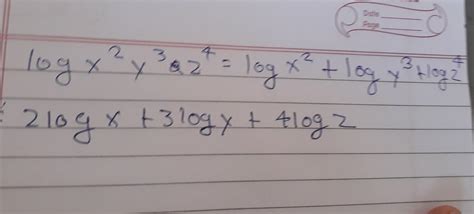 Date
Page
log x² y³ z⁴ = log x² + log y³ + log z⁴
2log x + 3log y + 4log z